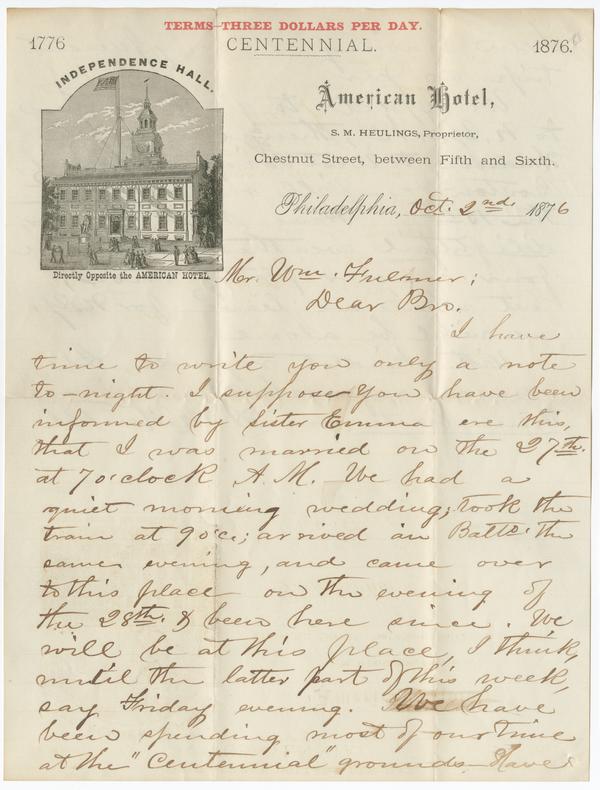 TERMS—THREE DOLLARS PER DAY.
1776 CENTENNIAL. 1876.
INDEPENDENCE HALL.
American Hotel,
S. M. HEULINGS, Proprietor,
Chestnut Street, between Fifth and Sixth.
Philadelphia, Oct. 2nd. 1876
Directly Opposite the AMERICAN HOTEL.
Mr. Wm. Fulmer;
Dear Bro.
I have
time to write you only a note
to-night. I suppose you have been
informed by Sister Emma ere this,
that I was married on the 27th.
at 7 o'clock A. M. We had a
quiet morning wedding; took the
train at 9 oc; arrived in Balto. the
same evening, and came over
to this place on the evening of
the 28th. & been here since. We
will be at this place, I think,
until the latter part of this week,
say Friday evening. We have
been spending most of our time
at the "Centennial" grounds. Have